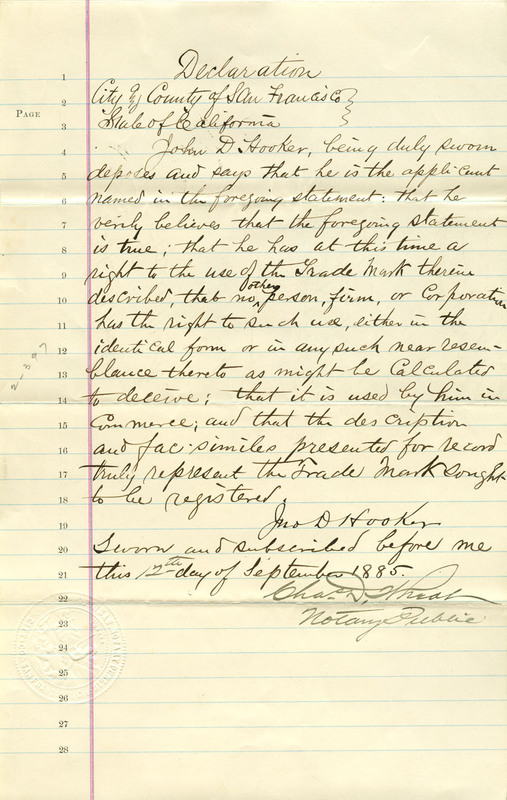 Declaration
City & County of San Francisco
State of California
John D Hooker, being duly sworn
deposes and says that he is the applicant
named in the foregoing statement: that he
verily believes that the foregoing statement
is true; that he has at this time a
right to the use of the Trade Mark therein
described, that no other person, firm, or Corporation
has the right to such use, either in the
identical form or in any such near resem-
blance thereto as might be Calculated
to deceive; that it is used by him in
Commerce; and that the description
and fac-similes presented for record
truly represent the Trade Mark sought
to be registered.
Jno D Hooker
Sworn and subscribed before me
this 12th day of September 1885.
Chas. D. Wheat
Notary Public
PAGE
1
2
3
4
5
6
7
8
9
10
11
12
13
14
15
16
17
18
19
20
21
22
23
24
25
26
27
28